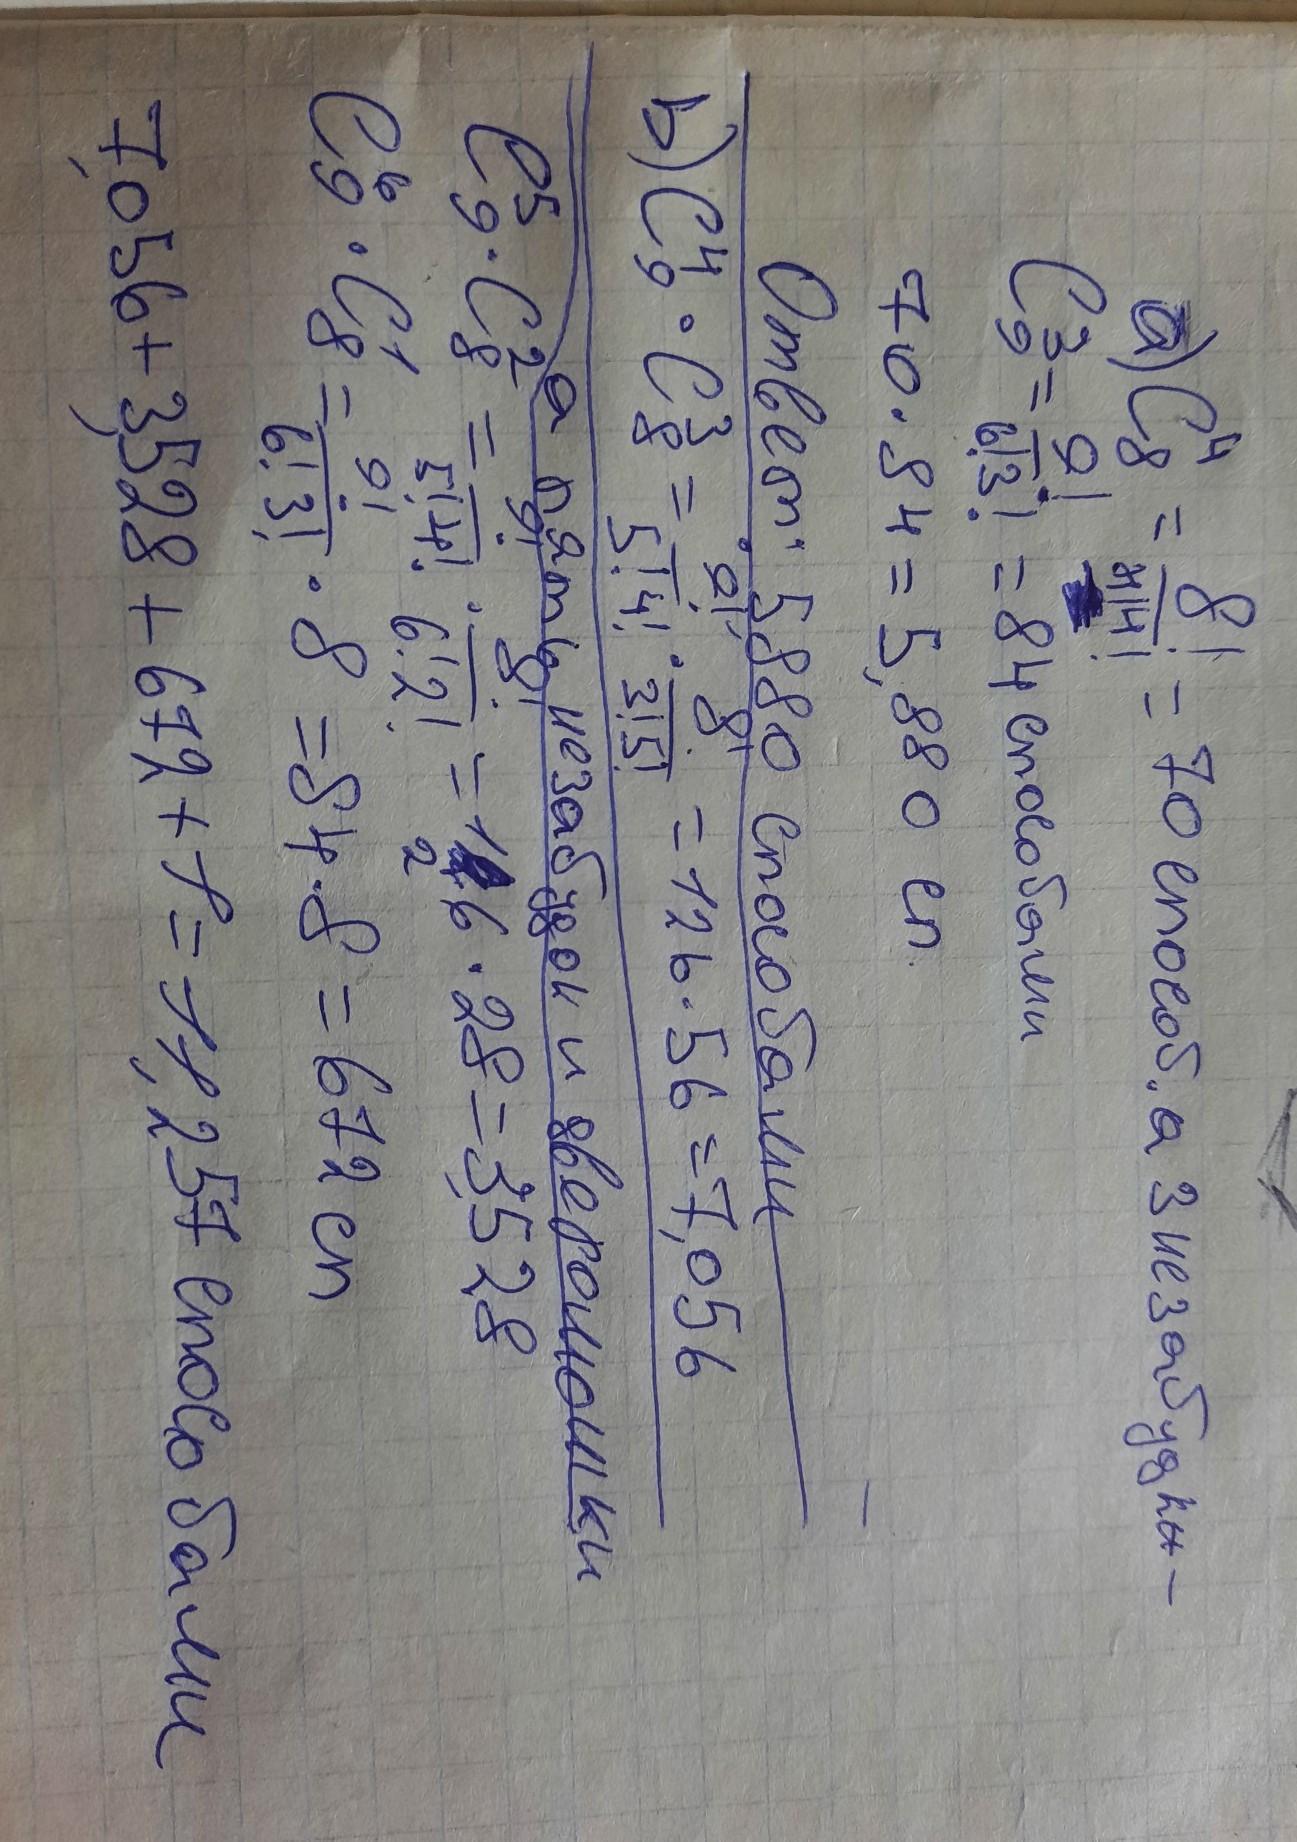 а) C₈⁴ = 8!/4!4! = 70 способ. а 3 незабудки –
C₉³ = 9!/6!3! = 84 способами
70 · 84 = 5,880 сп.
Ответ: 5880 способами
b) C₉⁴ · C₈³ = 9!/5!4! · 8!/3!5! = 126 · 56 = 7,056
а пять незабудок и две ромашки
C₉⁵ · C₈² = 9!/5!4! · 8!/6!2! = 126 · 28 = 3,528
C₉⁶ · C₈¹ = 9!/6!3! · 8 = 84 · 8 = 672 сп
7,056 + 3,528 + 672 + 1 = 11,257 способами